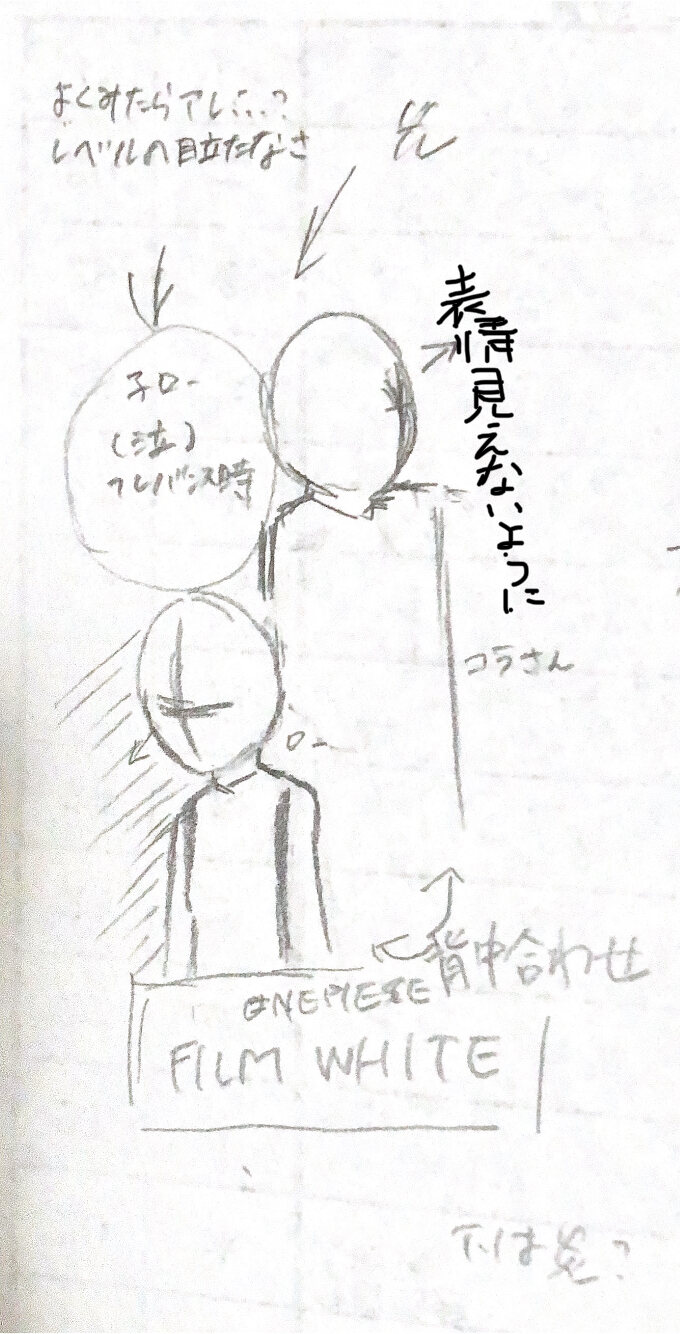 よくみたらアレ…?
レベルの目立たなさ
光
表情見えないように
子ロー
(泣)
フレバンス時
コラさん
ロー
背中合わせ
ONE PIECE
FILM WHITE
下は炎?